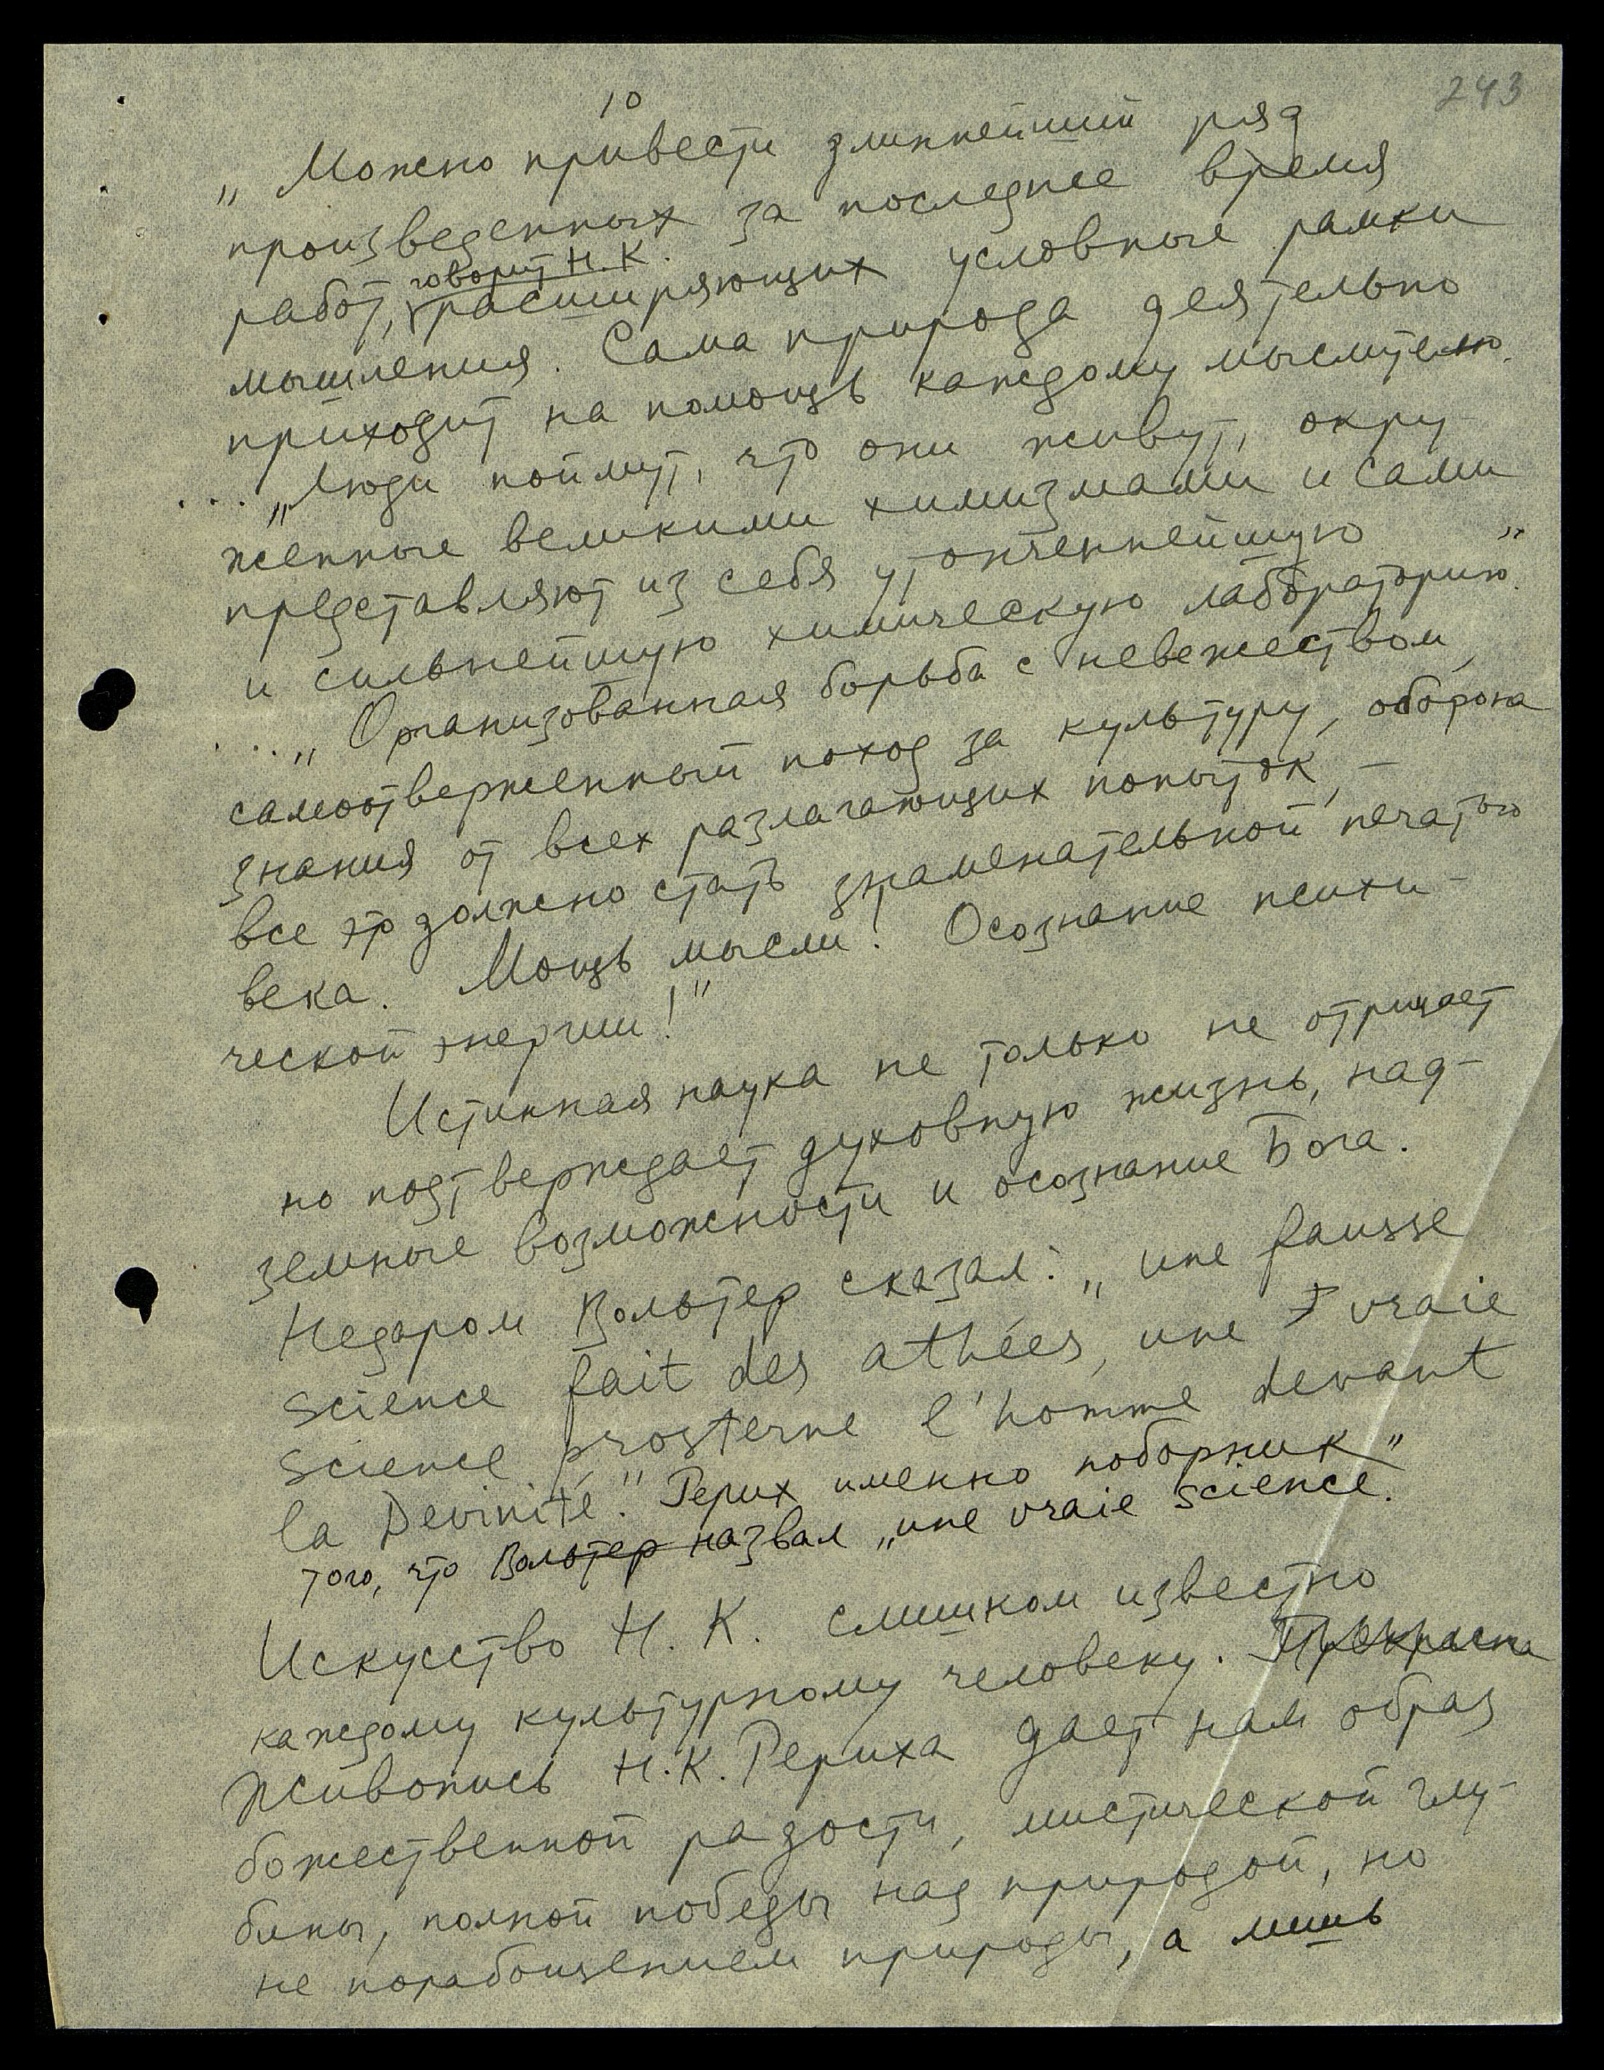 10
243
„Можно привести длиннейший ряд
произведенных за последнее время
говорит Н.К.
работ, расширяющих условные рамки
мышления. Сама природа деятельно
приходит на помощь каждому мыслителю.
... „Люди поймут, что они живут, окру-
женные великими химизмами и сами
представляют из себя утонченнейшую
и сильнейшую химическую лабораторию."
... „Организованная борьба с невежеством,
самоотверженный поход за культуру, оборона
знания от всех разлагающих попыток, –
все это должно стать знаменательной печатью
века. Мощь мысли! Осознание психи-
ческой энергии!"
Истинная наука не только не отрицает
но подтверждает духовную жизнь, над-
земные возможности и осознание Бога.
Недаром Вольтер сказал: „une fausse
science fait des athées, une vraie
science prosterne l'homme devant
la Devinité." Рерих именно поборник
того, что Вольтер назвал „une vraie science."
Искусство Н. К. слишком известно
каждому культурному человеку. Прекрасна
Живопись Н.К. Рериха дает нам образ
божественной радости, мистической глу-
бины, полной победы над природой, но
не порабощением природы, а лишь